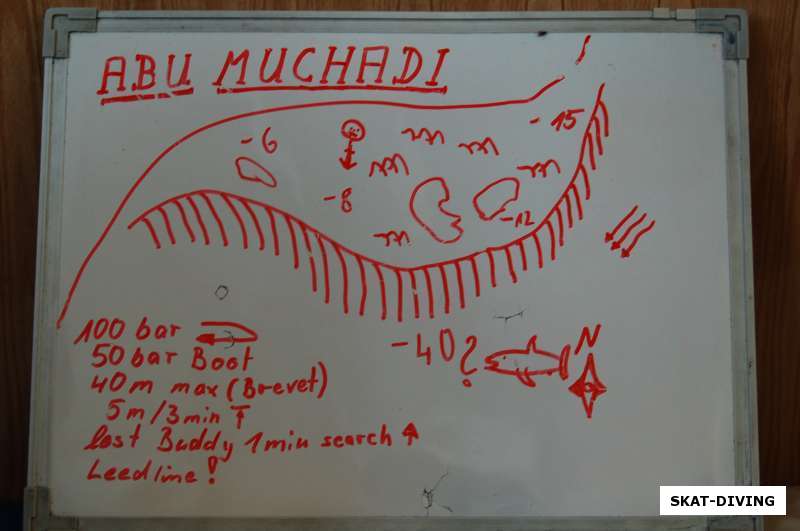 ABU MUCHADI
-15
-6
-8
-12
-40?
N
100 bar
50 bar Boot
40m max (Brevet)
5m/3min
lost Buddy 1min search
Leedline!
SKAT-DIVING